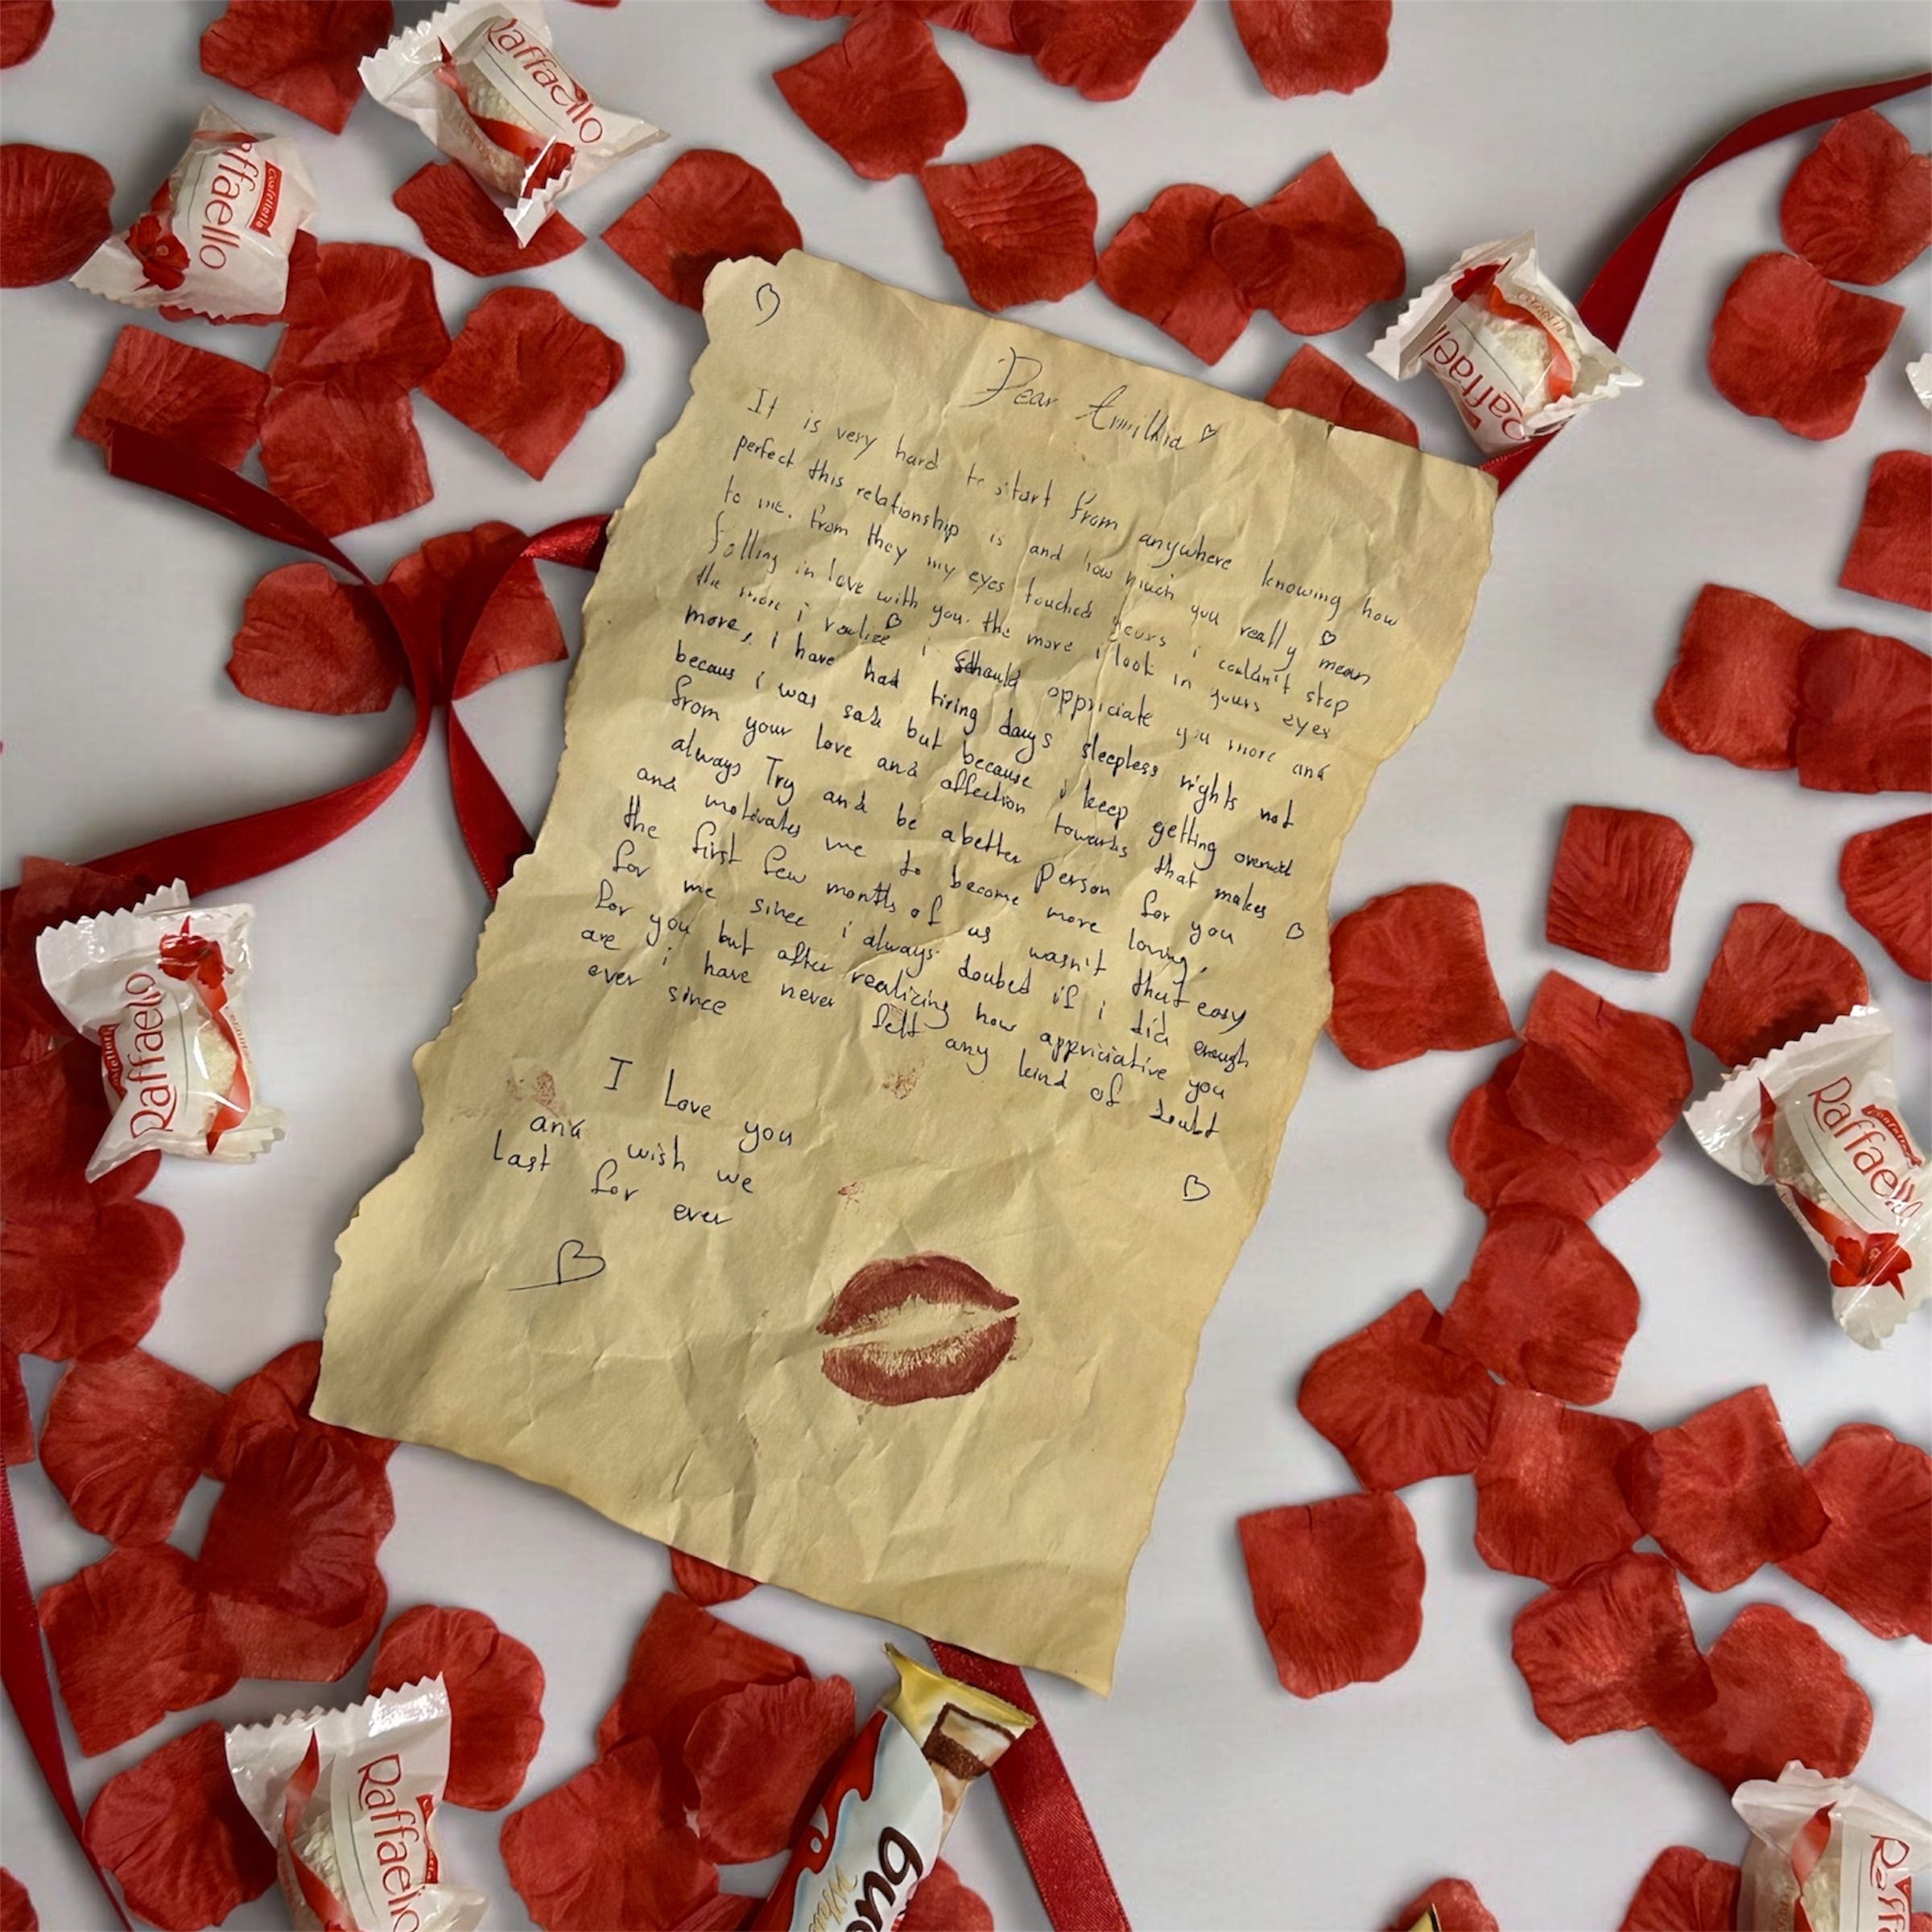 Raffaello
Raffaello
Confetteria
Raffael
Dear
It is very hard to start from anywhere knowing how
perfect this relationship is and how much you really mean
to me. From they my eyes touched yours i couldn't stop
falling in love with you. the more i look in yours eyes
the more i realize i should appriciate you more and
more, i have had tiring days sleepless nights not
becaus i was sad but because i keep getting
from your love and affection towards that makes
always Try and be abetter Person for you
and motivates me to become more loving,
the first few months of us wasn't that easy
for me since i always doubed if i did enough
for you but after realizing how appriciative you
are i have never felt any kind of doubt
ever since
I Love you
and wish we
Last for ever
Raffaello
Raffaello
Raffaello
bue
Raff